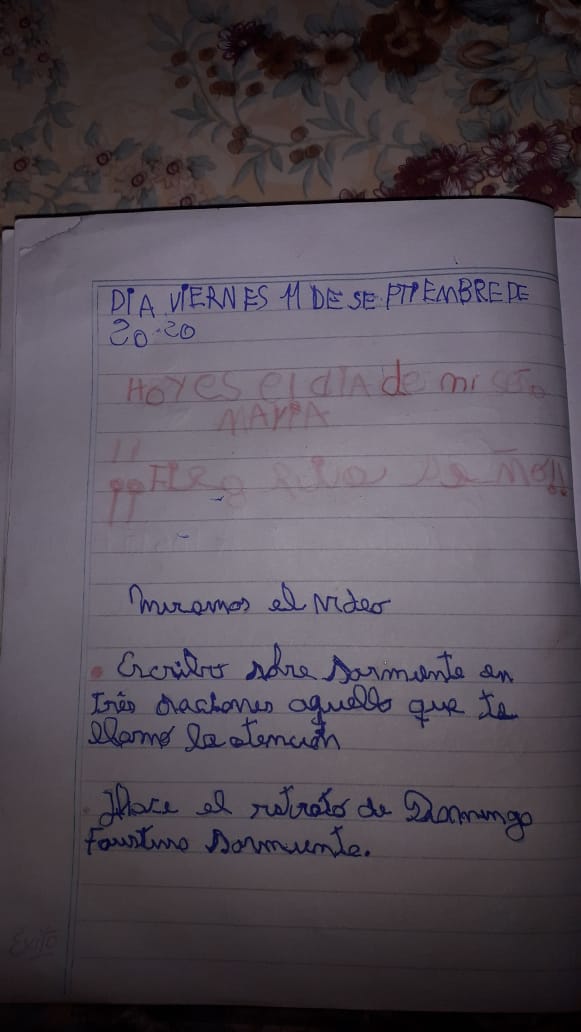 DIA VIERNES 11 DE SEPTIEMBRE DE
20-20
HOY ES el dIA de mi SEÑO
MARIA
Miramos el video
Escribo sobre sarmiente en
tres oraciones aquello que te
llamó la atención
Hace el retrato de Domingo
Faustino sarmiente.
Exito